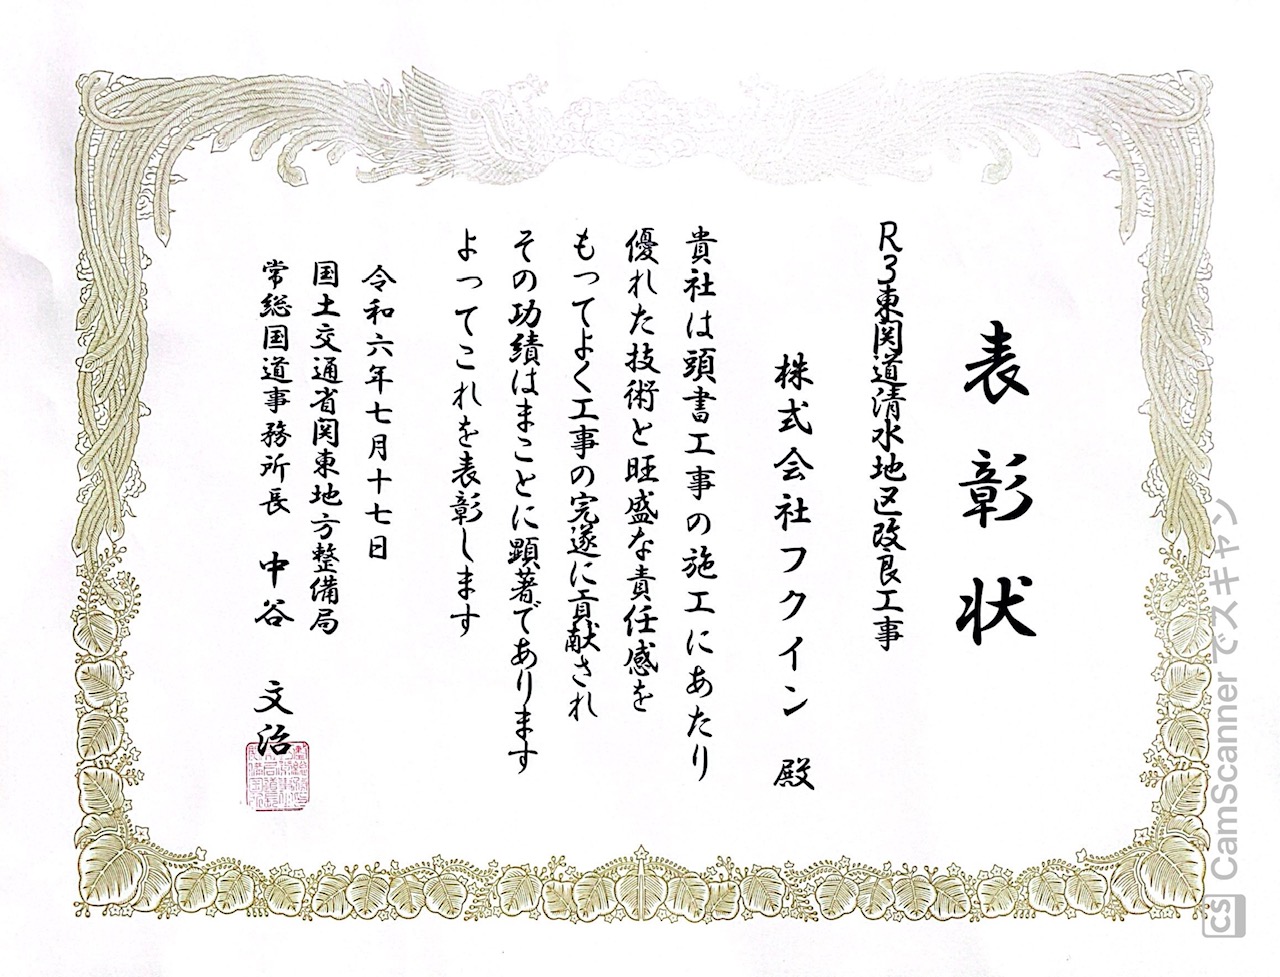 表彰状
R3東関道清水地区改良工事
株式会社フクイン 殿
貴社は頭書工事の施工にあたり
優れた技術と旺盛な責任感を
もってよく工事の完遂に貢献され
その功績はまことに顕著であります
よってこれを表彰します
令和六年七月十七日
国土交通省関東地方整備局
常総国道事務所長 中谷 文治
CS CamScanner でスキャン